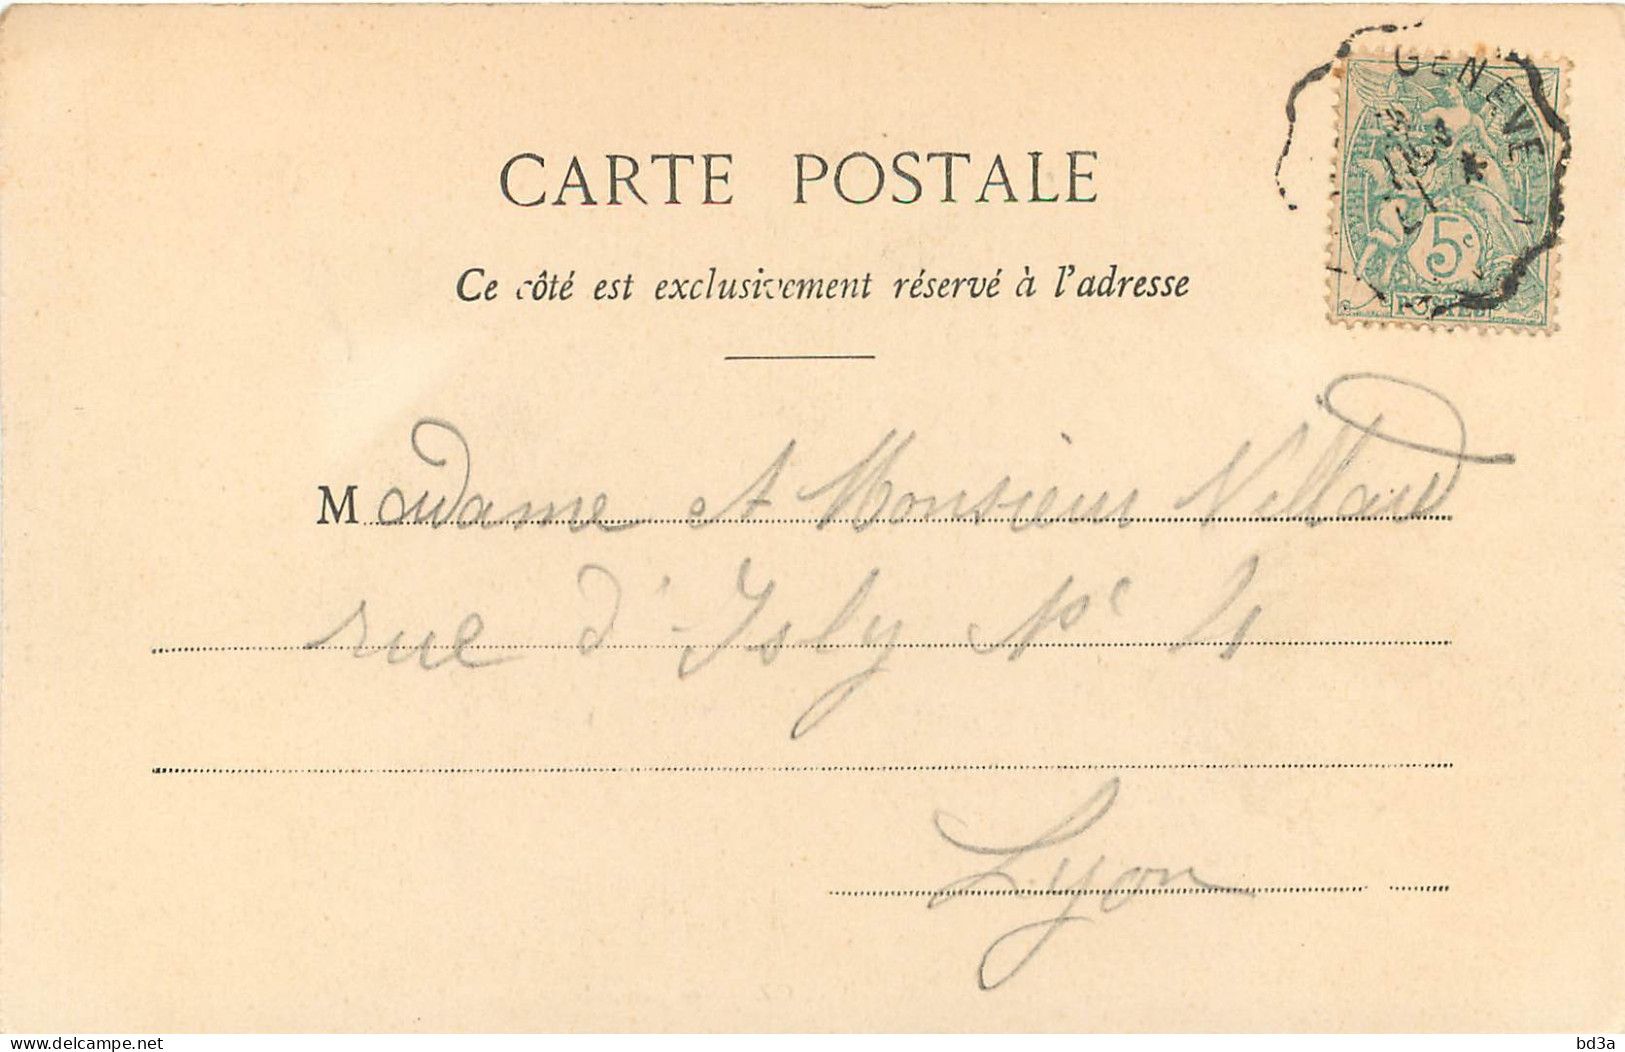 CARTE POSTALE
GENEVE
*
5c
POSTES
Ce côté est exclusivement réservé à l'adresse
Madame et Monsieur Villard
rue d'Isly No 4
Lyon
delcampe.net
bd3a